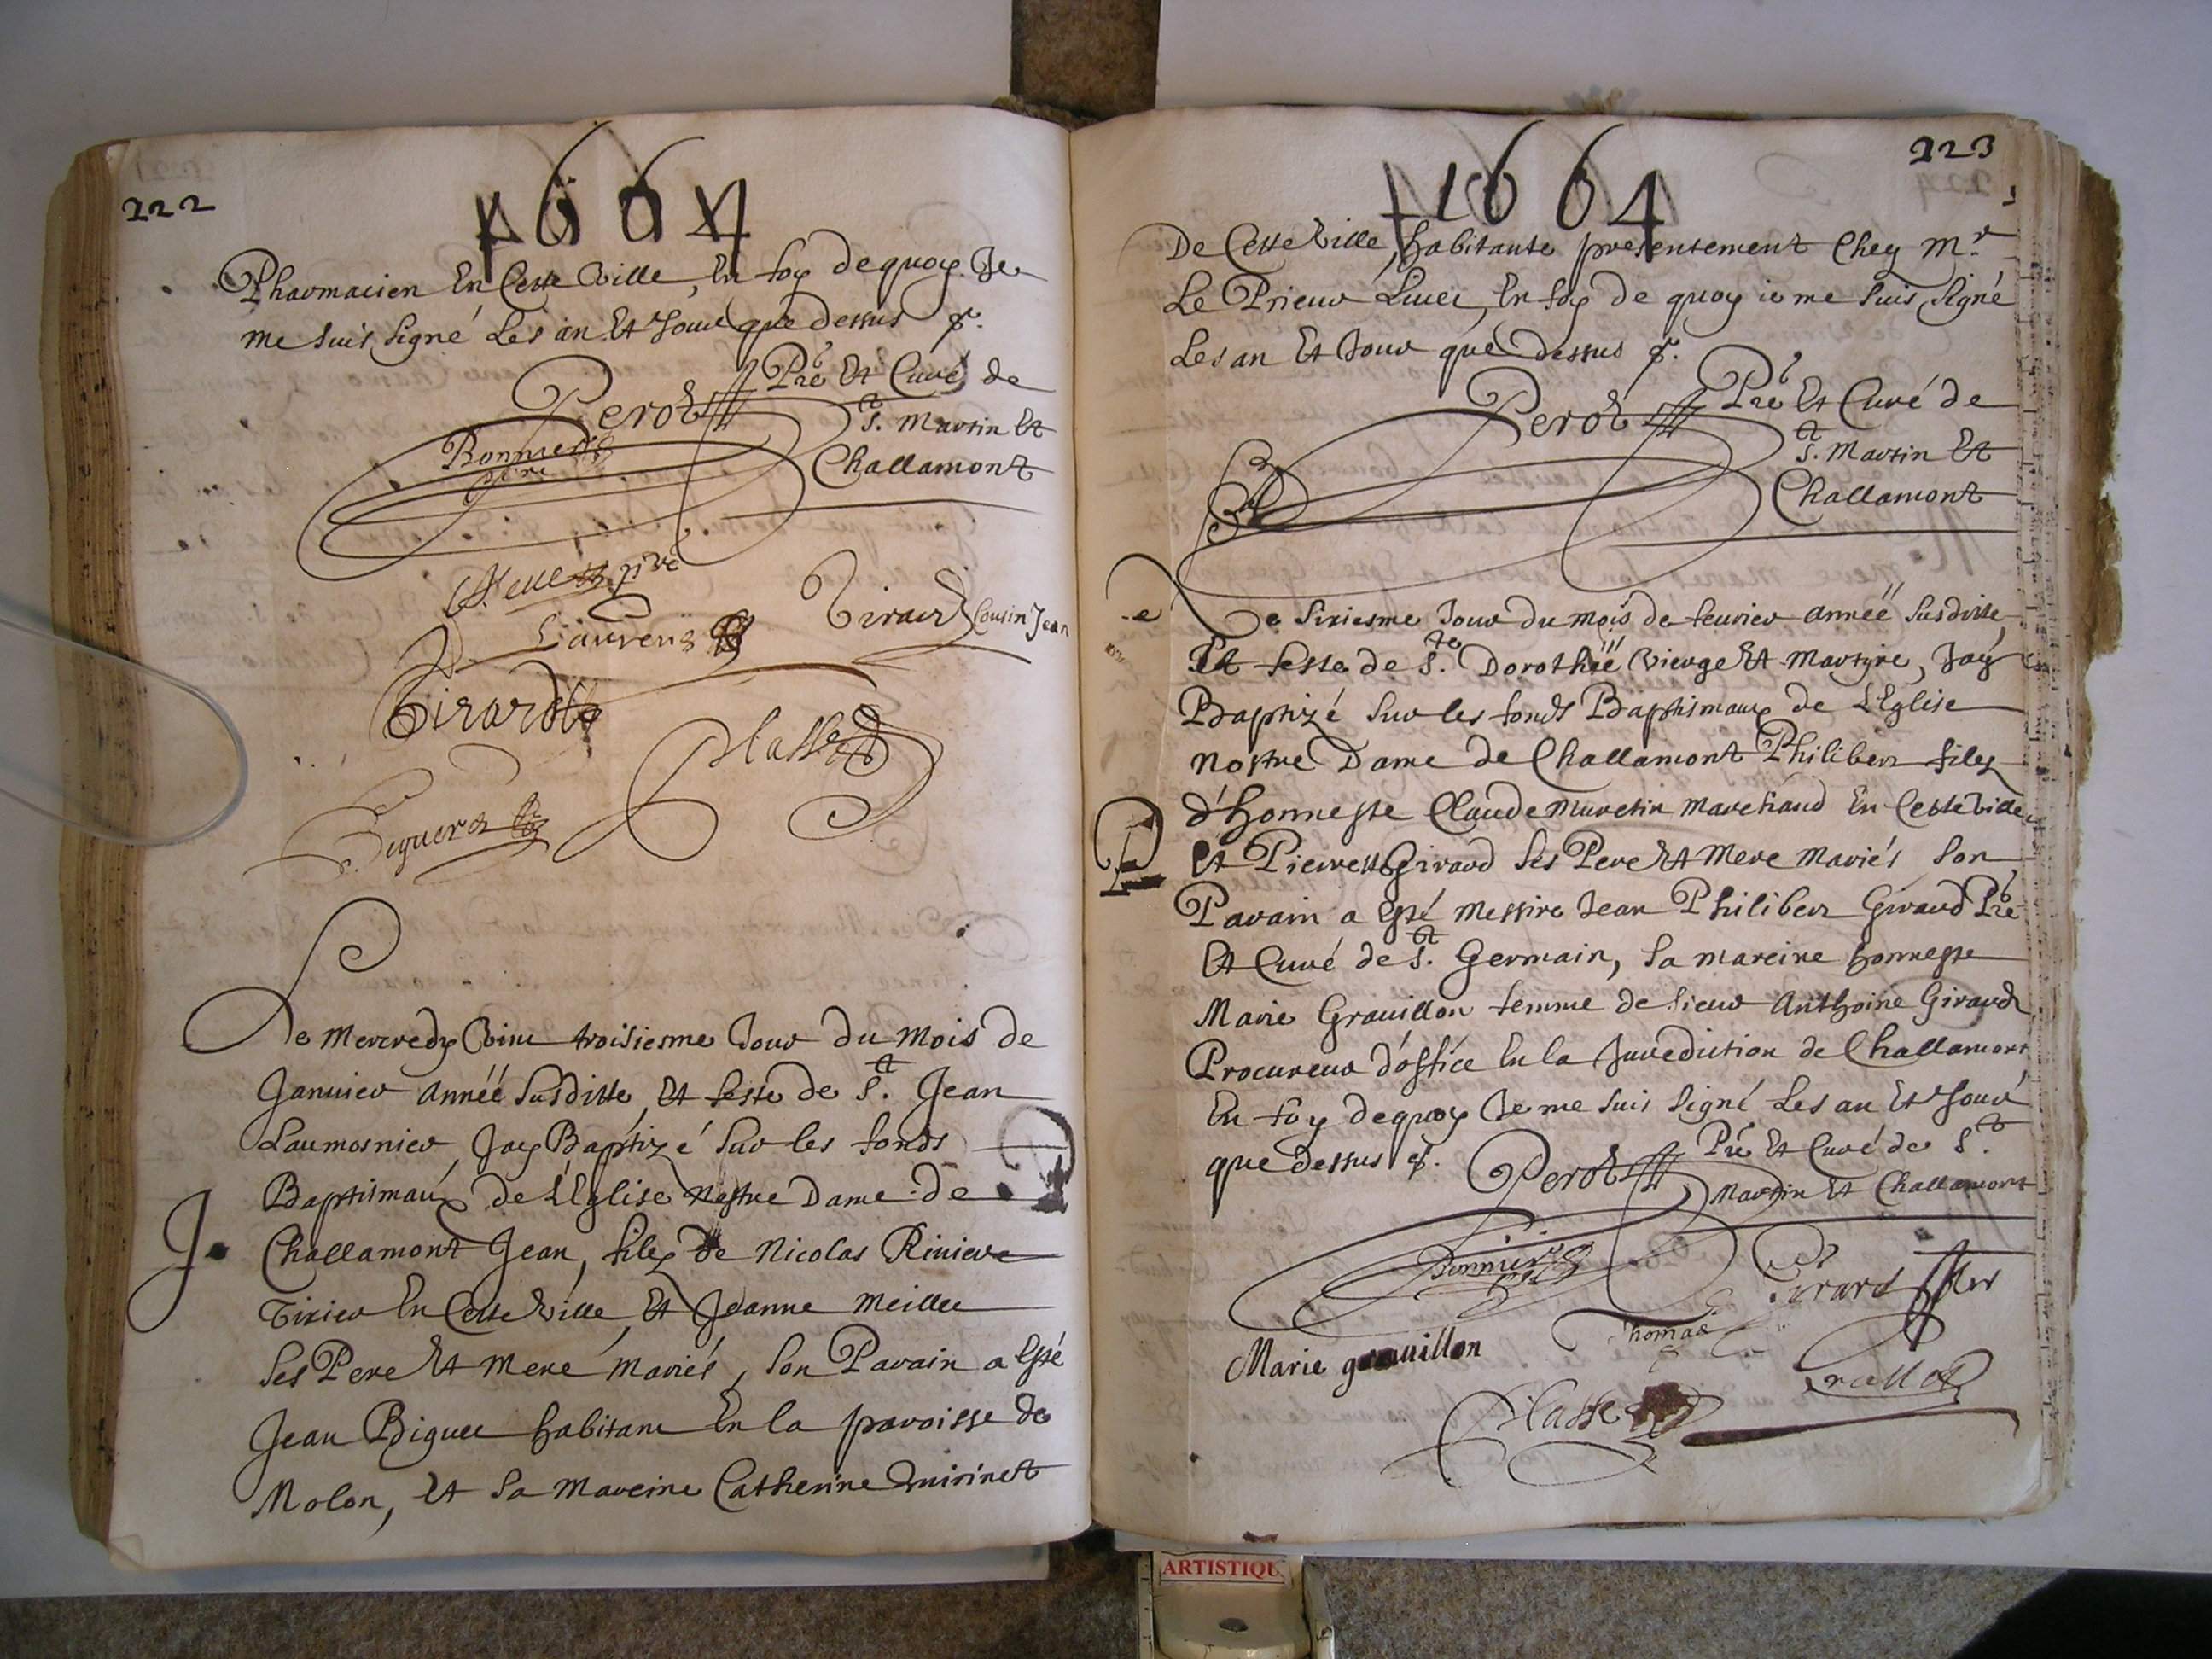 222
1664
Pharmacien En Cette Ville, En foy dequoy Je
me suis signé Les an Et Jour que dessus
Perot Pre Et Curé de
St. Martin Et
Challamont
Bonnier
Laurens
Girard Cousin Jean
Girard
Classe
Le Mercredy Vint troisiesme Jour du Mois de
Januier Année susditte, Et feste de St. Jean
Laumosnier, Jay Baptizé sur les fonds
Baptismaux de L'Eglise Nostre Dame de
J.
Challamont Jean, filz de Nicolas Riuiere
Tixier En Cette Ville, Et Jeanne Meiller
ses Pere Et Mere mariés, son Parain a Esté
Jean Biguet habitant En la paroisse de
Molon, Et sa mareine Catherine
223
1664
De Cette Ville, habitante presentement Chez Mr
Le Prieur En foy de quoy ie me suis signé
Les an Et Jour que dessus
Perot Pre Et Curé de
St. Martin Et
Challamont
Le sixiesme Jour du mois de feurier Année susditte,
Et feste de Ste Dorothéé Vierge Et Martyre, Jay
Baptizé sur les fonds Baptismaux de L'Eglise
Nostre Dame de Challamont Philibert filz
d'honneste Claude Muretin Marchand En Cette Ville,
P
Et Pierrette Giraud ses Pere Et Mere mariés son
Parain a Esté Messire Jean Philibert Giraud Pre
Et Curé de St. Germain, sa mareine honneste
Marie Grauillon femme de sieur Anthoine Giraud
Procureur d'office En la Jurediction de Challamont
En foy dequoy Je me suis signé Les an Et Jour
que dessus
Perot Pre Et Curé de St.
Martin Et Challamont
Bonnier
Girard
Marie grauillon
Thomas
Classe
ARTISTIQU